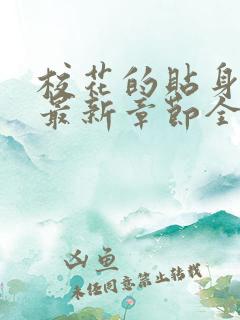 校花的贴身
最新章节全
凶鱼
未经同意禁止转载